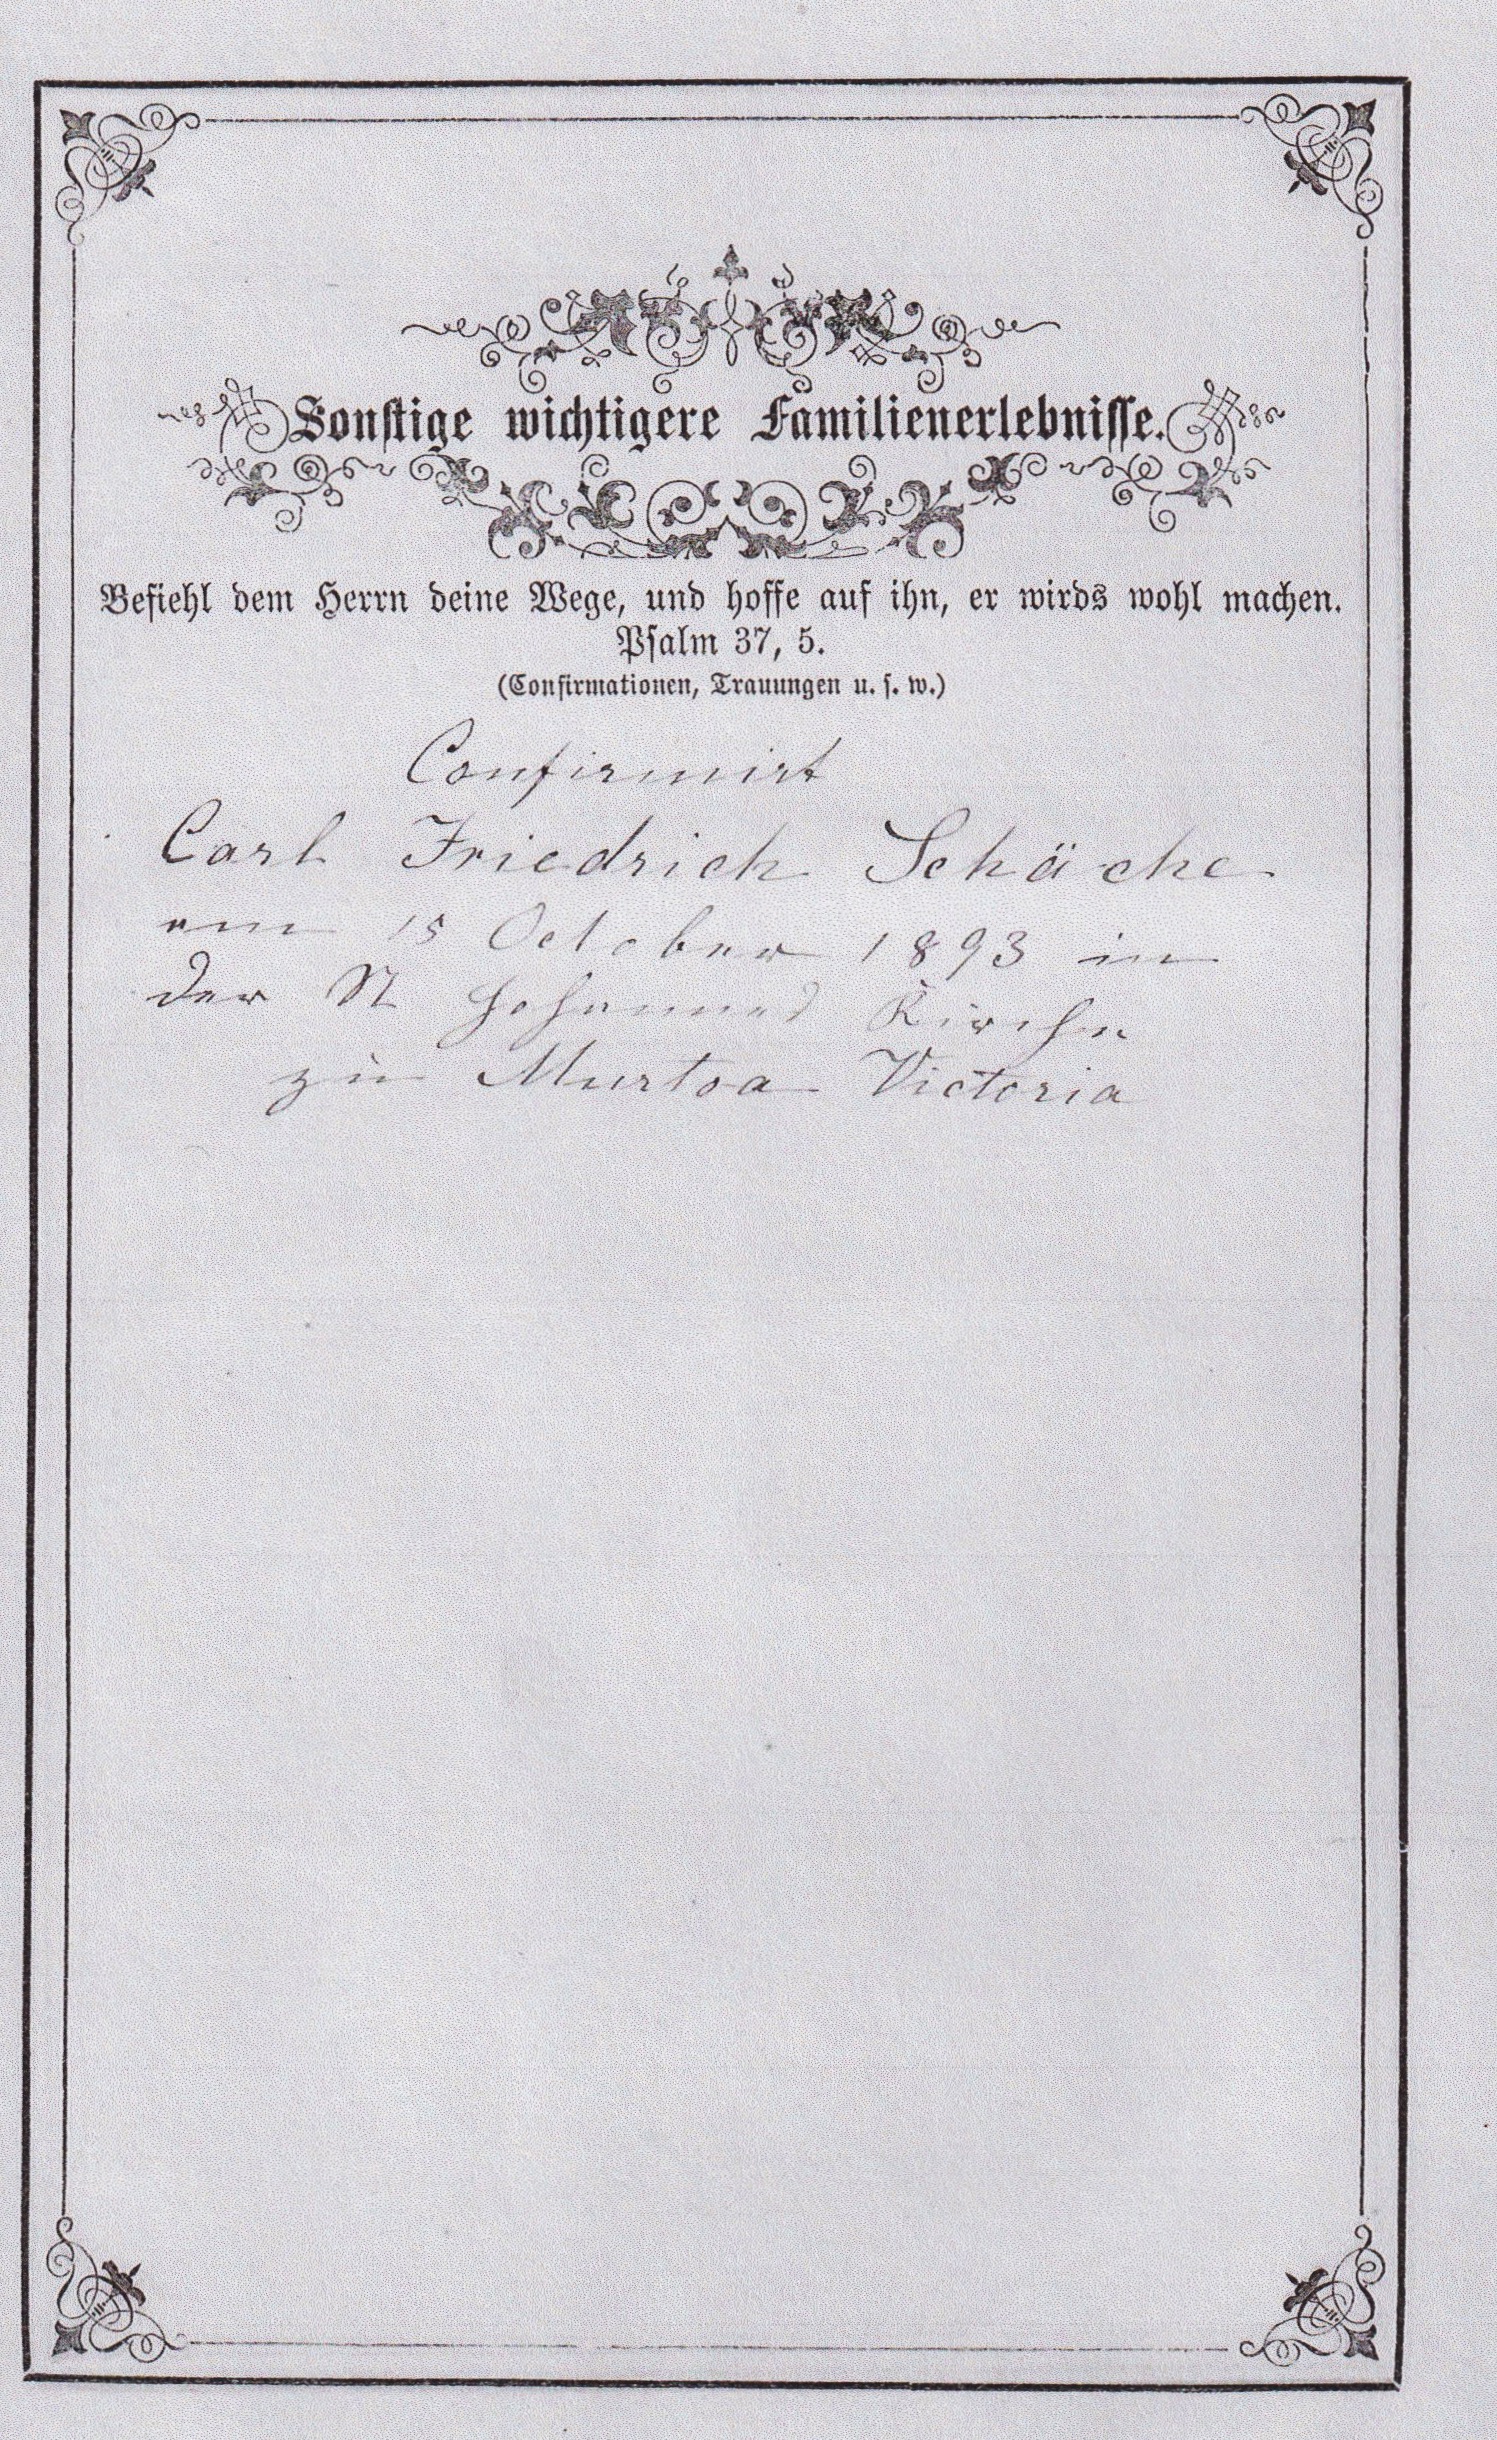 Sonstige wichtigere Familienerlebnisse.
Befiehl dem Herrn deine Wege, und hoffe auf ihn, er wirds wohl machen.
Psalm 37, 5.
(Confirmationen, Trauungen u. s. w.)
Confirmirt
Carl Friedrich Schäche
am 15 October 1893 in
der St Johannes Kirche
zu Murtoa Victoria